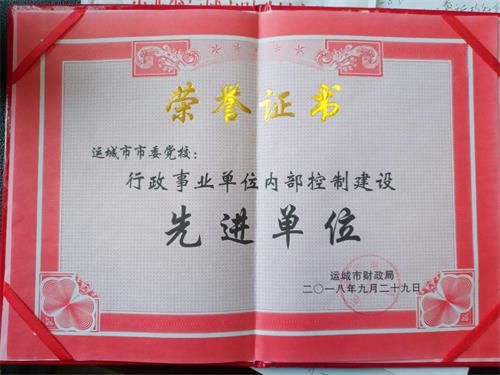 荣誉证书
运城市市委党校：
行政事业单位内部控制建设
先进单位
运城市财政局
二〇一八年九月二十九日